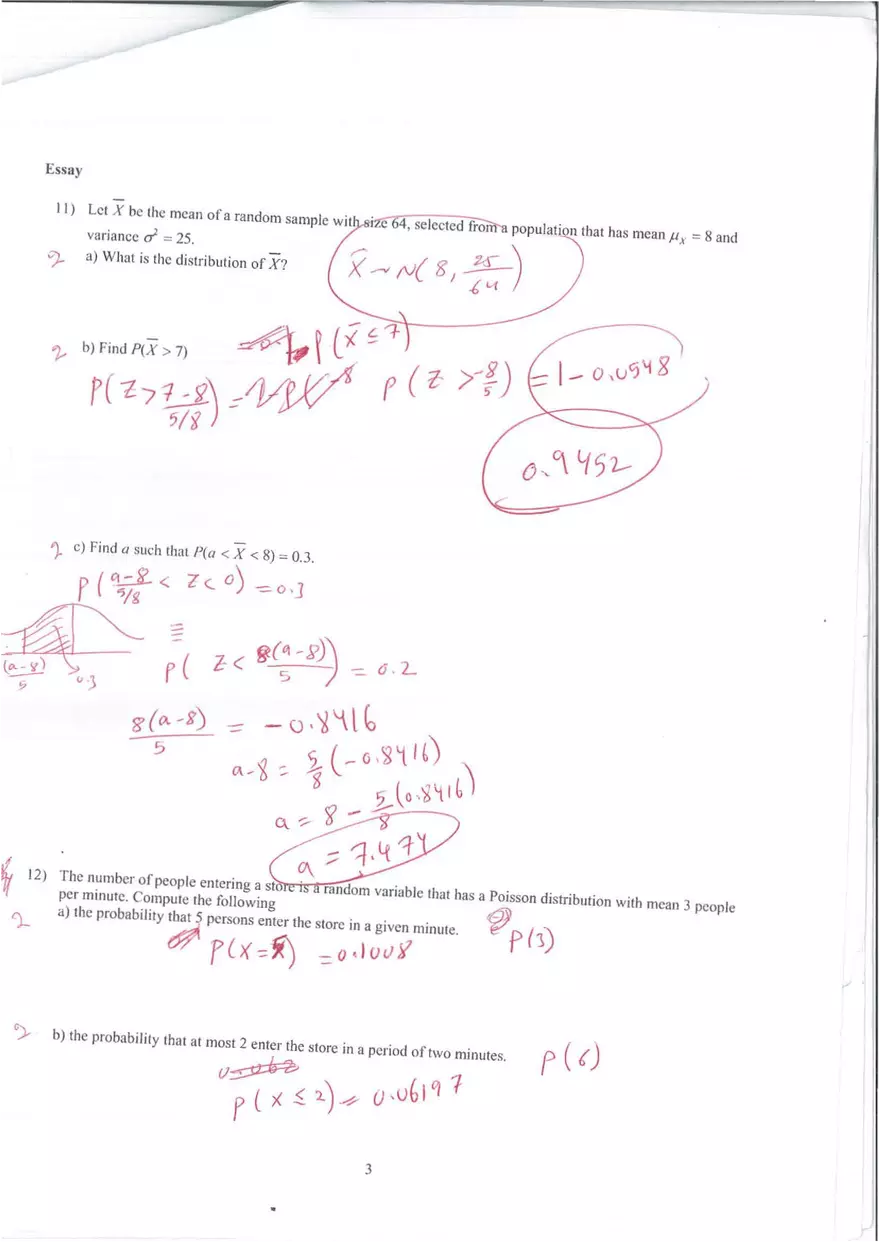 Essay
11) Let X̅ be the mean of a random sample with size 64, selected from a population that has mean μₓ = 8 and
variance σ² = 25.
2 a) What is the distribution of X̅?
X̅ ~ N(8, 25/64)
P(X̅ ≤ 7)
2 b) Find P(X̅ > 7)
P(Z > (7-8)/(5/8)) = P(Z > -8/5) = 1 - 0.0548
0.9452
2 c) Find a such that P(a < X̅ < 8) = 0.3.
P((a-8)/(5/8) < Z < 0) = 0.3
≡
(a-8)/5 0.3
P( Z < 8(a-8)/5) = 0.2
8(a-8)/5 = -0.8416
a-8 = 5/8 (-0.8416)
a = 8 - 5(0.8416)/8
a = 7.474
12) The number of people entering a store is a random variable that has a Poisson distribution with mean 3 people
per minute. Compute the following
2 a) the probability that 5 persons enter the store in a given minute.
P(3)
P(X=5) = 0.1008
2 b) the probability that at most 2 enter the store in a period of two minutes.
P(6)
P(X ≤ 2) = 0.06197
3